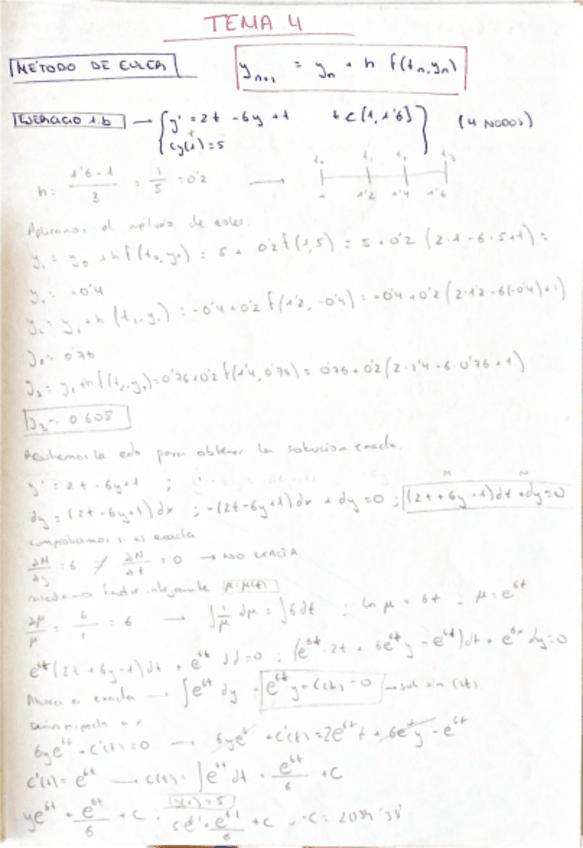 TEMA 4
MÉTODO DE EULER
y_{n+1} = y_n + h f(t_n, y_n)
EJERCICIO 1.b → { y' = 2t - 6y + 1 t ∈ [1, 1'6] (4 NODOS)
y(1) = 5
h = (1'6 - 1)/3 = 1/5 = 0'2 →
1 1'2 1'4 1'6
Aplicamos el método de euler.
y_1 = y_0 + h f(t_0, y_0) = 5 + 0'2 f(1, 5) = 5 + 0'2 (2·1 - 6·5 + 1) =
y_1 = -0'4
y_2 = y_1 + h (t_1, y_1) = -0'4 + 0'2 f(1'2, -0'4) = -0'4 + 0'2 (2·1'2 - 6(-0'4) + 1)
y_2 = 0'76
y_3 = y_2 + h f(t_2, y_2) = 0'76 + 0'2 f(1'4, 0'76) = 0'76 + 0'2 (2·1'4 - 6·0'76 + 1)
y_3 = 0'608
Resolvemos la edo para obtener la solución exacta.
y' = 2t - 6y + 1 ;
dy = (2t - 6y + 1) dx ; -(2t - 6y + 1) dx + dy = 0 ; (2t + 6y - 1) dt + dy = 0
M N
comprobamos si es exacta
∂M/∂y = 6 ≠ ∂N/∂t = 0 → NO EXACTA
factor integrante μ = μ(t)
∂μ/μ = 6/1 = 6 → ∫ 1/μ dμ = ∫ 6 dt ; ln μ = 6t μ = e^{6t}
e^{6t} (2t + 6y - 1) dt + e^{6t} dy = 0 ; (e^{6t} · 2t + 6e^{6t} y - e^{6t}) dt + e^{6x} dy = 0
Ahora es exacta → ∫ e^{6t} dy = e^{6t} y + C(t) = 0 → sol sin C(t)
6ye^{6t} + C'(t) = 0 → 6ye^{6t} + C'(t) = 2e^{6t} t + 6e^{6t} y - e^{6t}
C'(t) = e^{6t} → C(t) = ∫ e^{6t} dt = e^{6t}/6 + C
y(1) = 5
ye^{6t} + e^{6t}/6 + C